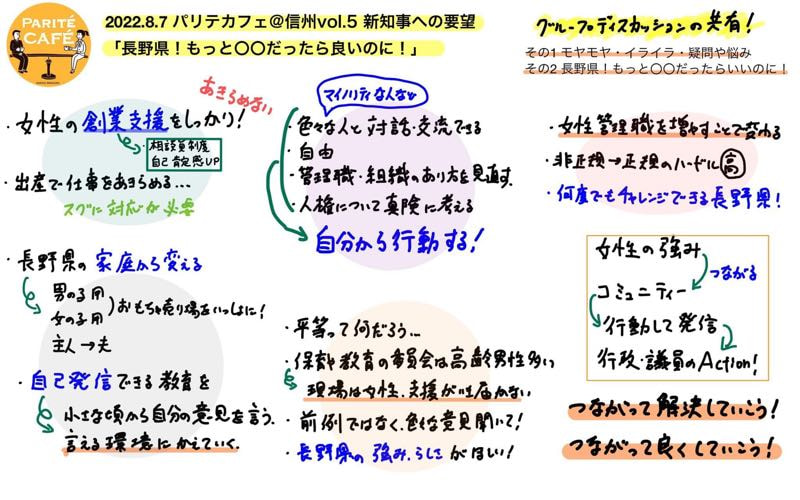 PARITÉ
CAFÉ
2022.8.7 パリテカフェ@信州vol.5 新知事への要望
「長野県！もっと〇〇だったら良いのに！」
グループディスカッションの共有！
その1 モヤモヤ・イライラ・疑問や悩み
その2 長野県！もっと〇〇だったらいいのに！
あきらめない
・女性の創業支援をしっかり！
・相談員制度
自己肯定感UP
・出産で仕事をあきらめる…
スグに対応が必要
・長野県の家庭から変える
男の子用
女の子用
おもちゃ売り場をいっしょに！
主人→夫
・自己発信できる教育を
小さな頃から自分の意見を言う。
言える環境にかえていく。
マイノリティなんない
・色々な人と対話・交流できる
・自由
・管理職・組織のあり方を見直す。
・人権について真険に考える
自分から行動する！
・平等って何だろう…
・保育や教育の委員会は高齢男性多い
現場は女性。支援が行届かない
・前例ではなく、色々な意見聞いて！
・長野県の強み、らしさがほしい！
・女性管理職を増やすことで変わる
・非正規→正規のハードル高
・何度でもチャレンジできる長野県！
女性の強み
つながる
コミュニティー
行動して発信
行政・議員のAction！
つながって解決していこう！
つながって良くしていこう！